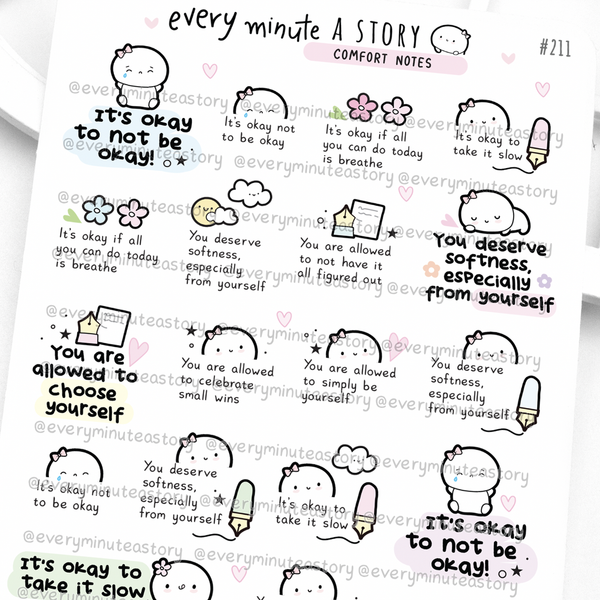 every minute A STORY
COMFORT NOTES
#211
It's okay
to not be
okay!
It's okay not
to be okay
It's okay if all
you can do today
is breathe
It's okay to
take it slow
It's okay if all
you can do today
is breathe
You deserve
softness,
especially
from yourself
You are allowed
to not have it
all figured out
You deserve
softness,
especially
from yourself
You are
allowed to
choose
yourself
You are allowed
to celebrate
small wins
You are allowed
to simply be
yourself
You deserve
softness,
especially
from yourself
It's okay not
to be okay
You deserve
softness,
especially
from yourself
It's okay to
take it slow
It's okay
to not be
okay!
It's okay to
take it slow
@everyminuteastory